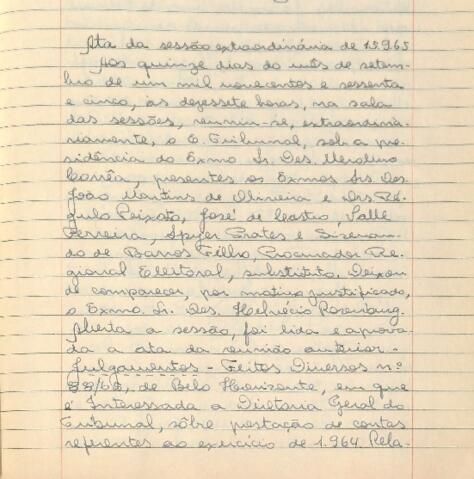 Ata da sessão extraordinária de 15.9.65
Aos quinze dias do mês de setem-
bro de um mil novecentos e sessenta
e cinco, às dezessete horas, na sala
das sessões, reuniu-se, extraordina-
riamente, o E. Tribunal, sob a pre-
sidência do Exmo Sr. Des. Merolino
Corrêa, presentes os Exmos Srs. Des.
João Martins de Oliveira e Drs. Ré-
gulo Peixoto, José de Castro, Valle
Ferreira, Spyer Prates e Sizenan-
do de Barros Filho, Procurador Re-
gional Eleitoral, substituto. Deixou
de comparecer, por motivo justificado,
o Exmo. Sr. Des. Helvécio Rosenburg.
Aberta a sessão, foi lida e aprova-
da a ata da reunião anterior.-
Julgamentos - Feitos Diversos nº
de Belo Horizonte, em que
é Interessada a Diretoria Geral do
Tribunal, sôbre prestação de contas
referentes ao exercício de 1.964. Rela-